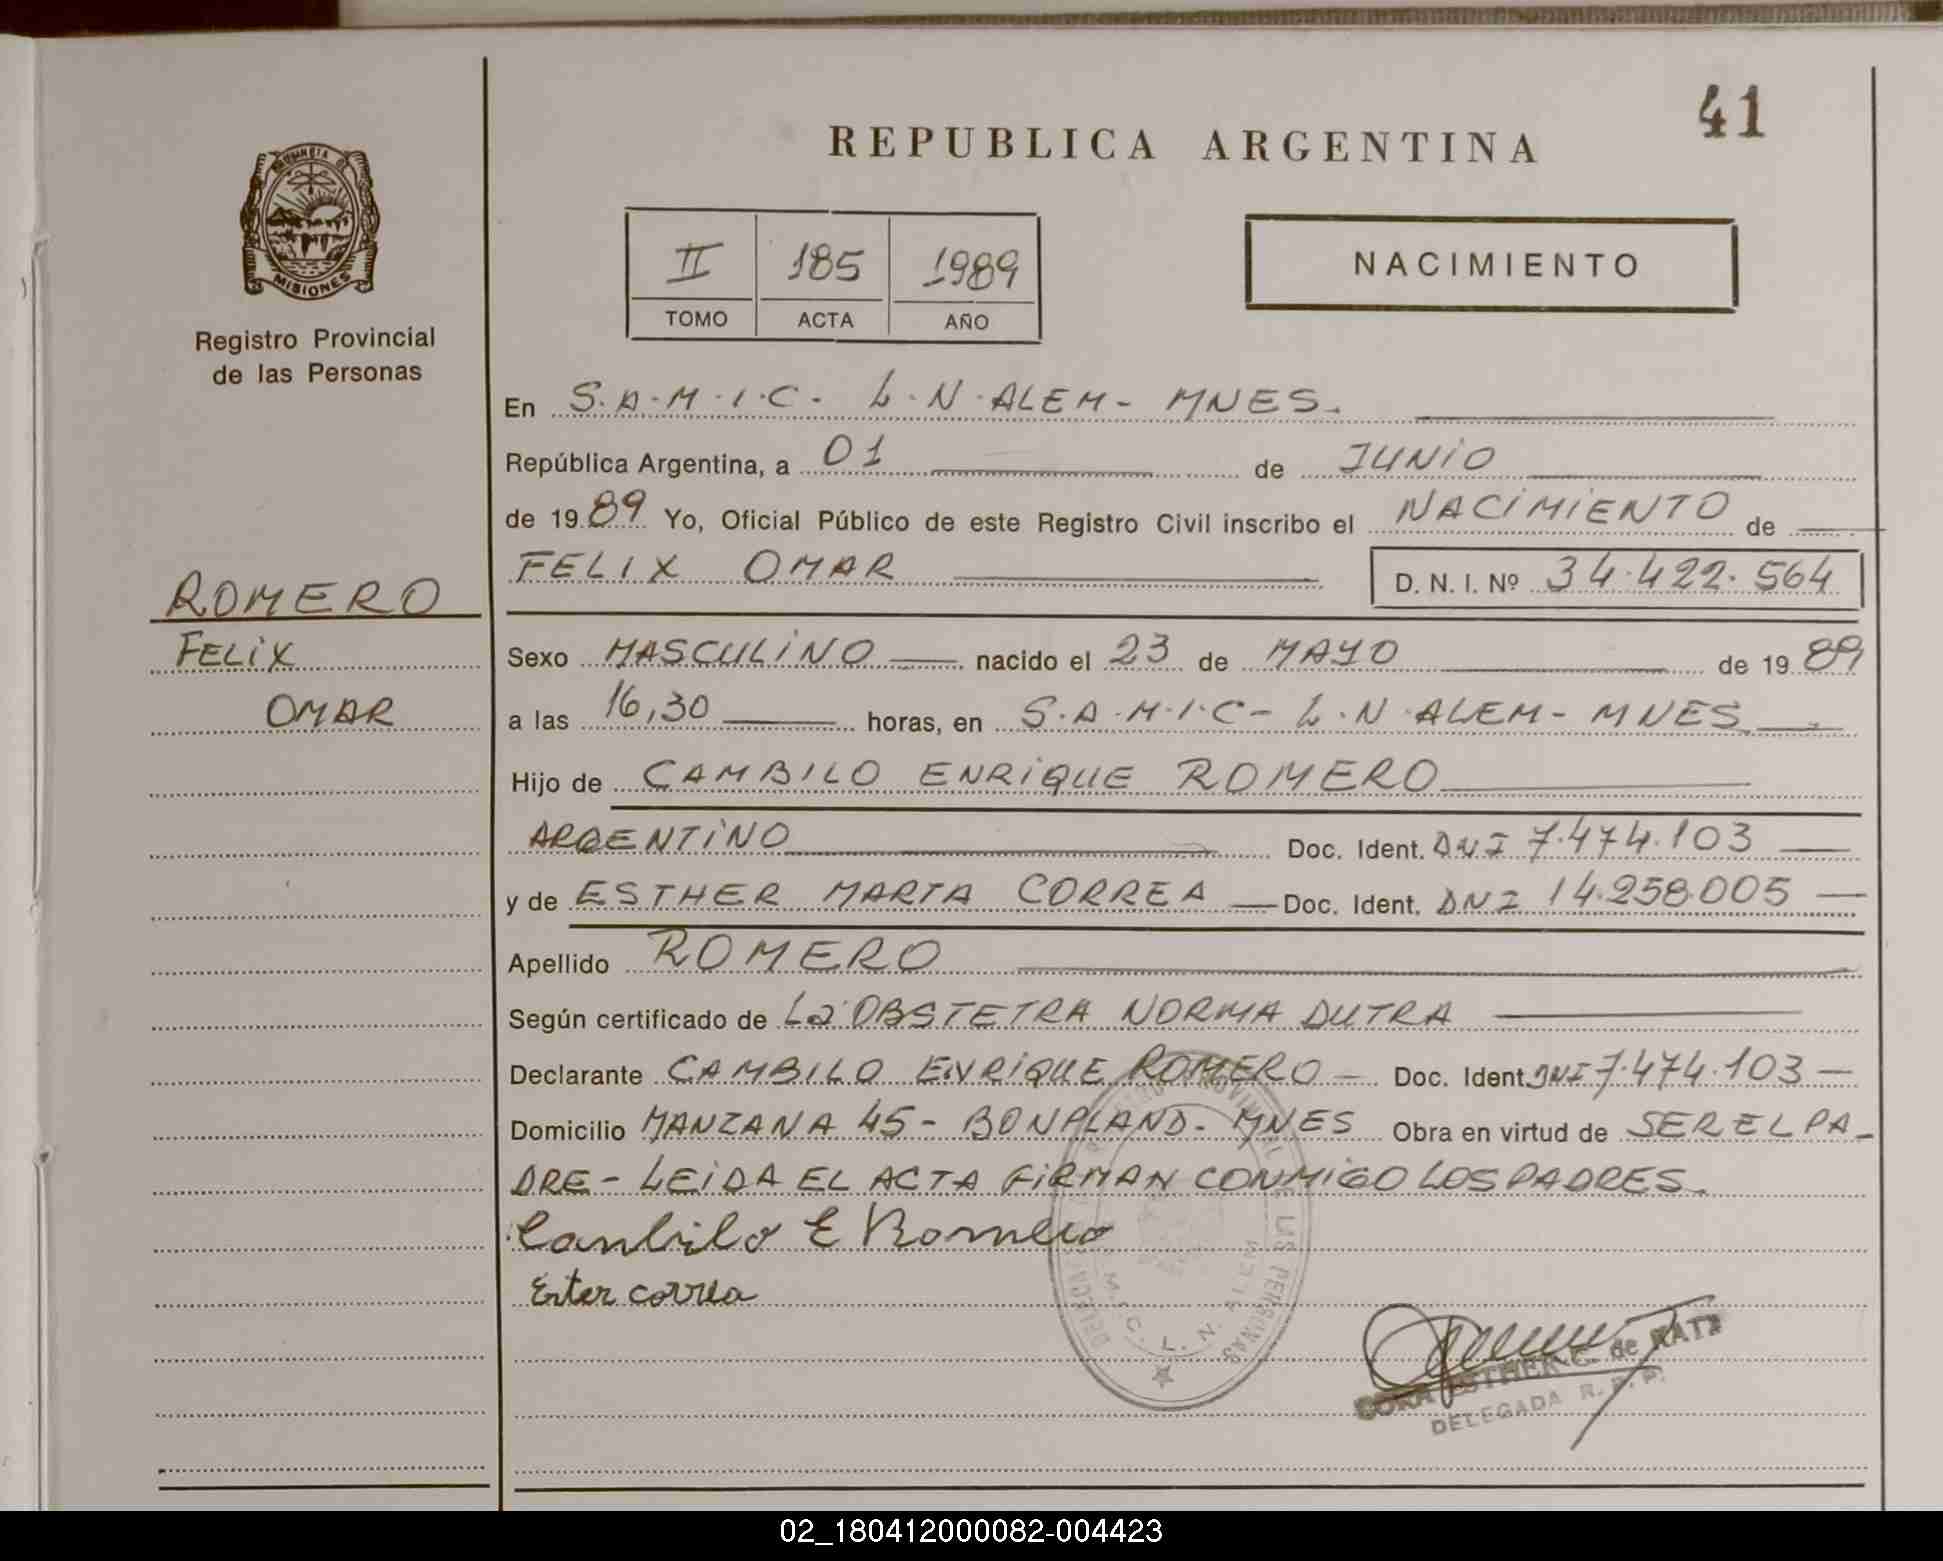 41
REPUBLICA ARGENTINA
PROVINCIA D
MISIONES
Registro Provincial
de las Personas
II 185 1989
TOMO ACTA AÑO
NACIMIENTO
En S.A.M.I.C. L.N.ALEM- MNES.
República Argentina, a 01 de JUNIO
de 1989 Yo, Oficial Público de este Registro Civil inscribo el NACIMIENTO de
FELIX OMAR D. N. I. Nº 34.422.564
ROMERO
FELIX
OMAR
Sexo MASCULINO nacido el 23 de MAYO de 1989
a las 16,30 horas, en S.A.M.I.C- L.N.ALEM- MNES
Hijo de CAMBILO ENRIQUE ROMERO
ARGENTINO Doc. Ident. DNI 7.474.103
y de ESTHER MARTA CORREA Doc. Ident. DNI 14.258.005
Apellido ROMERO
Según certificado de La OBSTETRA NORMA DUTRA
Declarante CAMBILO ENRIQUE ROMERO - Doc. Ident. DNI 7.474.103 -
Domicilio MANZANA 45- BONPLAND- MNES Obra en virtud de SER EL PA-
DRE- LEIDA EL ACTA FIRMAN CONMIGO LOS PADRES.
Canbilo E Romero
Ester correa
PROVINCIAL DE LAS PERSONAS
L. N. ALEM
ESTHER C. de RATZ
DELEGADA R. P. P.
02_180412000082-004423